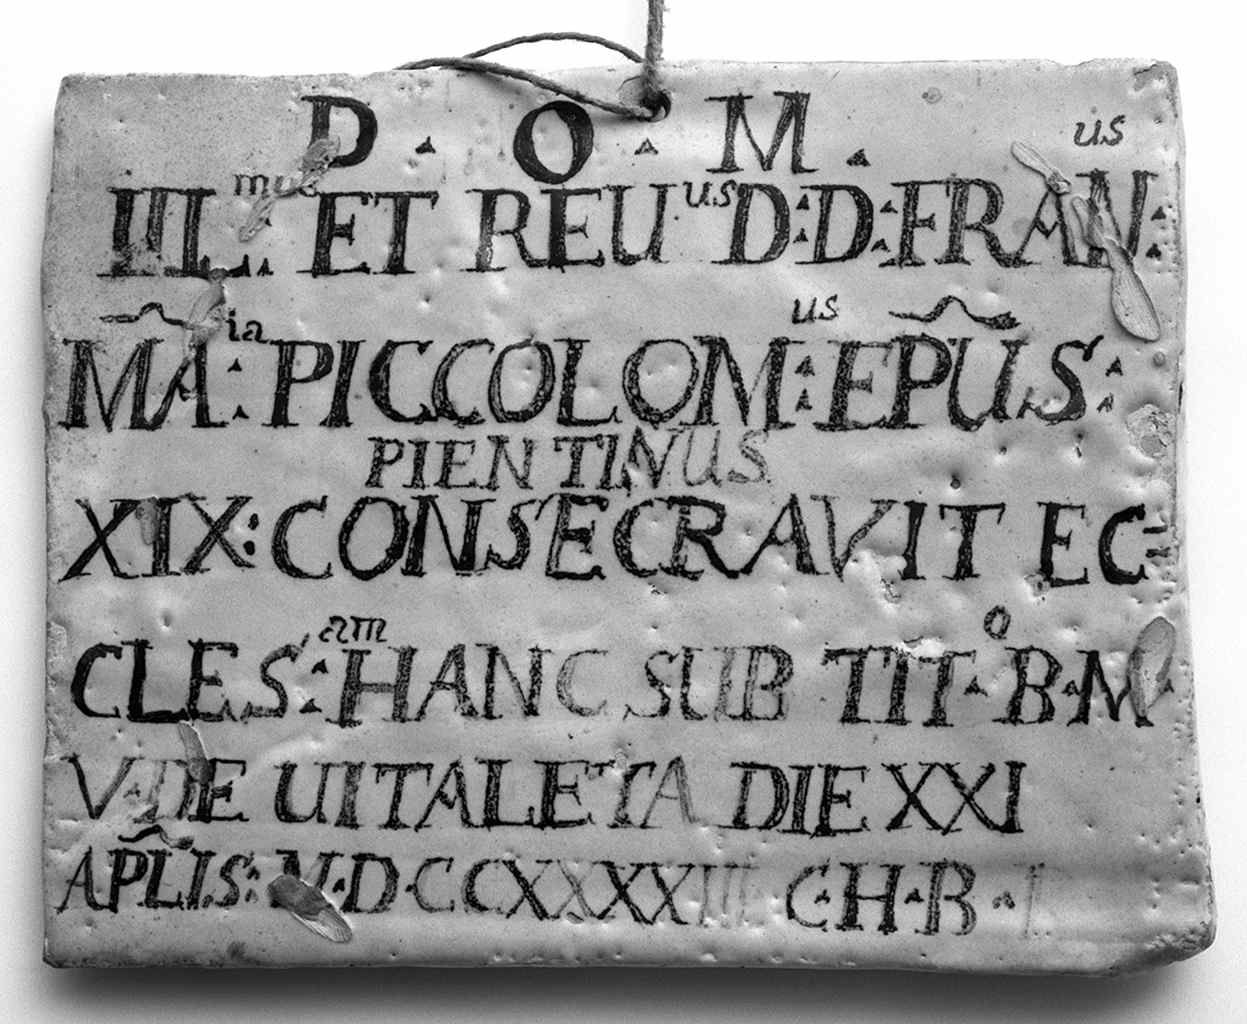 D · O · M ·
ILL^mus : ET REU^us D:D:FRAN^us:
MA^ia: PICCOLOM^us: EPUS:
PIENTINUS
XIX: CONSECRAVIT EC=
CLES^am: HANC SUB TIT^o · B·M
V·DE UITALETA DIE XXI
APLIS: M·D·CCXXXXIII C·H·B·